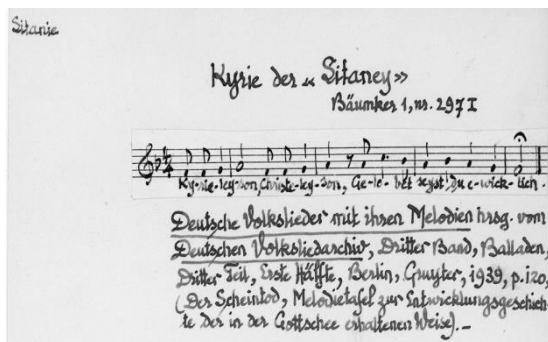 Litanie
Kyrie der « Litaney»
Bäumker 1, nr. 297 I
Ky-rie-ley-son, Christe-ley-son, Ge-lo-bet seyst Du e-wick-lich.
Deutsche Volkslieder mit ihren Melodien hrsg. vom
Deutschen Volksliedarchiv, Dritter Band, Balladen,
Dritter Teil, Erste Hälfte, Berlin, Gruyter, 1939, p. 120,
(Der Scheintod, Melodietafel zur Entwicklungsgeschich
te der in der Gottschee erhaltenen Weise). —